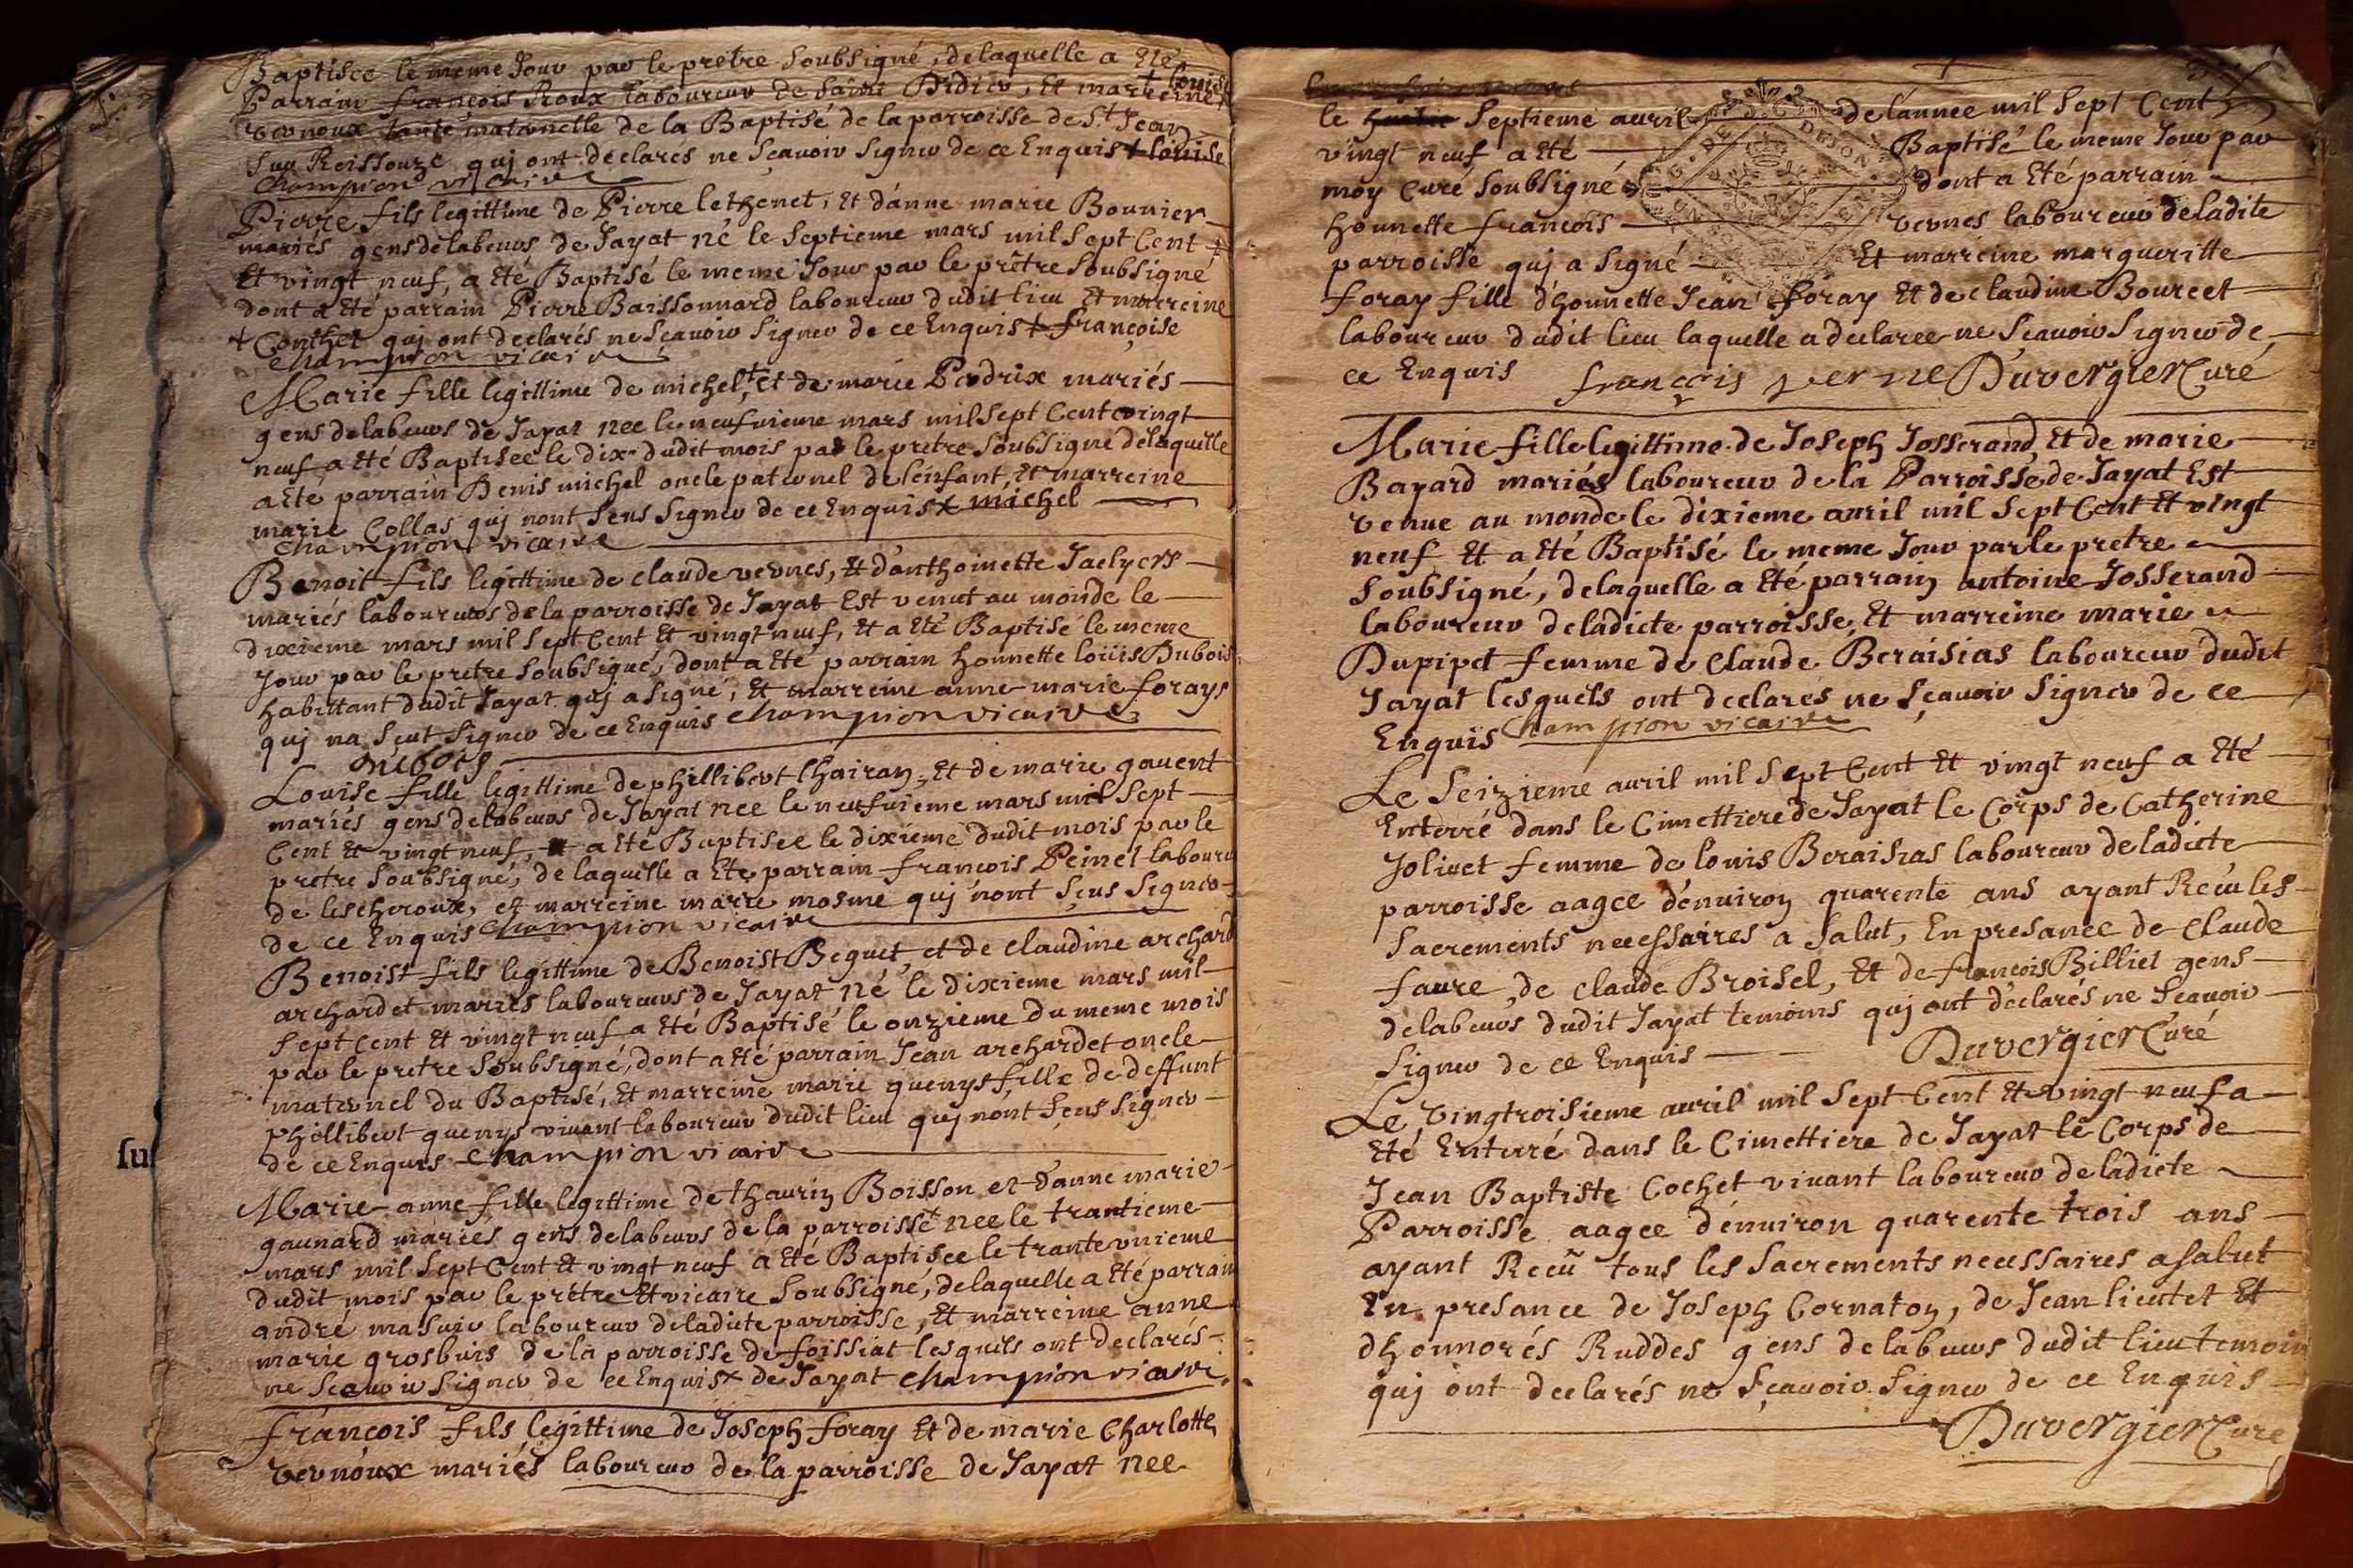 Baptisee le meme Jour par le pretre Soubsigné, delaquelle a Eté
Parrain françois Roux laboureur de Saint Didier, Et marreine + louise
vernoux tante maternelle de la Baptisé de la parroisse de St Jean
Sur Reissouze quj ont declarés ne Sçauoir Signer de ce Enquis + louise
Champion vicaire
Pierre fils legittime de Pierre lethenet, Et d'anne marie Bouuier
mariés gens delabeurs de Jayat né le Septieme mars mil Sept Cent +
Et vingt neuf, a Eté Baptisé le meme Jour par le prêtre Soubsigné
dont a Eté parrain Pierre Baissonnard laboureur dudit lieu Et marreine
+ Conthet quj ont declarés ne Sçauoir Signer de ce Enquis + françoise
Champion vicaire
Marie fille legittime de michel + et de marie Perdrix mariés
gens delabeurs de Jayat nee le neufuieme mars mil Sept Cent vingt
neuf a Eté Baptisee le dix dudit mois par le pretre Soubsigné delaquelle
a Eté parrain Denis michel oncle paternel de l'enfant, Et marreine
marie Collas quj nont Seus Signer de ce Enquis x michel
Champion vicaire
Benoit fils legittime de claude vernes, Et d'anthoinette Jaelyers
mariés laboureurs de la parroisse de Jayat Est venut au monde le
dixieme mars mil Sept Cent Et vingt neuf, Et a Eté Baptisé le meme
Jour par le pretre Soubsigné, dont a Eté parrain honnette loüis Dubois
habittant dudit Jayat quj a Signé, Et marreine anne marie forays
quj na Sçut Signer de ce Enquis Champion vicaire
Dubois
Louise fille legittime de phillibert Chairay, Et de marie gauent
mariés gens delabeurs de Jayat nee le neufuieme mars mil Sept
Cent Et vingt neuf, a Eté Baptisee le dixieme dudit mois par le
pretre Soubsigné, de laquelle a Eté parrain francois Peinet laboureu
de lescheroux, et marreine marie mosme quj n'ont Sçus Signer
de ce Enquis Champion vicaire
Benoist fils legittime de Benoist Beguet, et de claudine archard
archardet mariés laboureurs de Jayat né le dixieme mars mil
Sept cent Et vingt neuf a Eté Baptisé le onzieme du meme mois
par le pretre Soubsigné, dont a Eté parrain Jean archardet oncle
maternel du Baptisé, Et marreine marie guenys fille de deffunt
phillibert guenys viuant laboureur dudit lieu quj nont Sçus Signer
de ce Enquis Champion vicaire
Marie anne fille legittime de thaurin Boisson et d'anne marie
gaunard mariés gens delabeurs de la parroisse + nee le trantieme
mars mil Sept Cent Et vingt neuf a Eté Baptisee le trantevnieme
dudit mois par le prêtre Et vicaire Soubsigné, delaquelle a Eté parrain
andré masuir laboureur deladicte parroisse, Et marreine anne
marie grosbuis de la parroisse de foissiat lesquels ont declarés
ne Scauoir Signer de ce Enquis x de Jayat Champion vicaire
francois fils legittime de Joseph foray Et de marie Charlotte
vernoux mariés laboureur de la parroisse de Jayat nee
le Septieme auril de l'année mil Sept Cent
vingt neuf a Eté Baptisé le meme Jour par
moy Curé Soubsigné dont a Eté parrain
honnette francois vernes laboureur deladite
parroisse quj a Signé Et marreine margueritte
foray fille d'honnette Jean foray Et de claudine Bourcet
laboureur dudit lieu laquelle a declaree ne Sçauoir Signer de
ce Enquis françois verne Duvergier Curé
Marie fille legittime de Joseph Josserand, Et de marie
Bayard mariés laboureur de la Parroisse de Jayat Est
venue au monde le dixieme auril mil Sept Cent Et vingt
neuf Et a Eté Baptisé le meme Jour par le pretre
Soubsigné, delaquelle a Eté parrain antoine Josserand
laboureur deladicte parroisse, Et marreine marie
Dupipet femme de claude Beraisias laboureur dudit
Jayat lesquels ont declares ne Sçauoir Signer de ce
Enquis Champion vicaire
Le Seizieme auril mil Sept Cent Et vingt neuf a Eté
Enterré dans le Cimettiere de Jayat le Corps de Catherine
Joliuet femme de louis Beraisias laboureur deladicte
parroisse aagee d'enuiron quarente ans ayant Reçu les
Sacrements necessaires a Salut, En presance de Claude
faure, de claude Broisel, Et de francois Billiet gens
delabeurs dudit Jayat temoins quj ont declarés ne Scauoir
Signer de ce Enquis Duvergier Curé
Le vingtroisieme auril mil Sept Cent Et vingt neuf a
Eté Enterré dans le Cimettiere de Jayat le Corps de
Jean Baptiste Cochet viuant laboureur deladicte
Parroisse aagee d'enuiron quarente trois ans
ayant Reçu tous les Sacrements necessaires a Salut
En presance de Joseph Cornaton, de Jean lieutet Et
dhonnorés Ruddes gens delabeurs dudit lieu temoin
quj ont declarés ne Sçauoir Signer de ce Enquis
Duvergier Curé
su